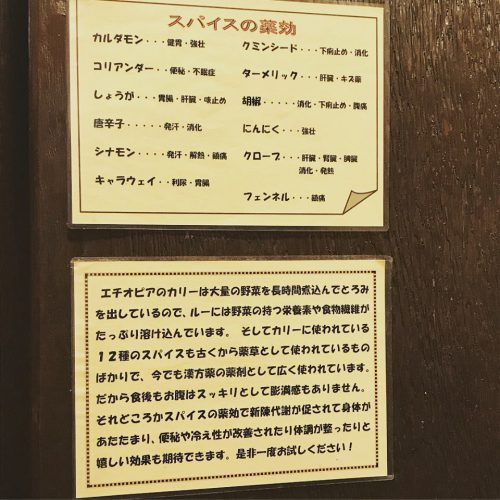 スパイスの薬効
カルダモン・・・健胃・強壮
クミンシード・・下痢止め・消化
コリアンダー・・便秘・不眠症
ターメリック・・・肝臓・キズ薬
しょうが・・・胃腸・肝臓・咳止め
胡椒・・・・・消化・下痢止め・腹痛
唐辛子・・・・発汗・消化
にんにく・・・強壮
シナモン・・・・発汗・解熱・鎮痛
クローブ・・・肝臓・腎臓・脾臓
消化・発熱
キャラウェイ・・利尿・胃腸
フェンネル・・鎮痛
エチオピアのカリーは大量の野菜を長時間煮込んでとろみ
を出しているので、ルーには野菜の持つ栄養素や食物繊維が
たっぷり溶け込んでいます。そしてカリーに使われている
１２種のスパイスも古くから薬草として使われているもの
ばかりで、今でも漢方薬の薬剤として広く使われています。
だから食後もお腹はスッキリとして膨満感もありません。
それどころかスパイスの薬効で新陳代謝が促されて身体が
あたたまり、便秘や冷え性が改善されたり体調が整ったりと
嬉しい効果も期待できます。是非一度お試しください！